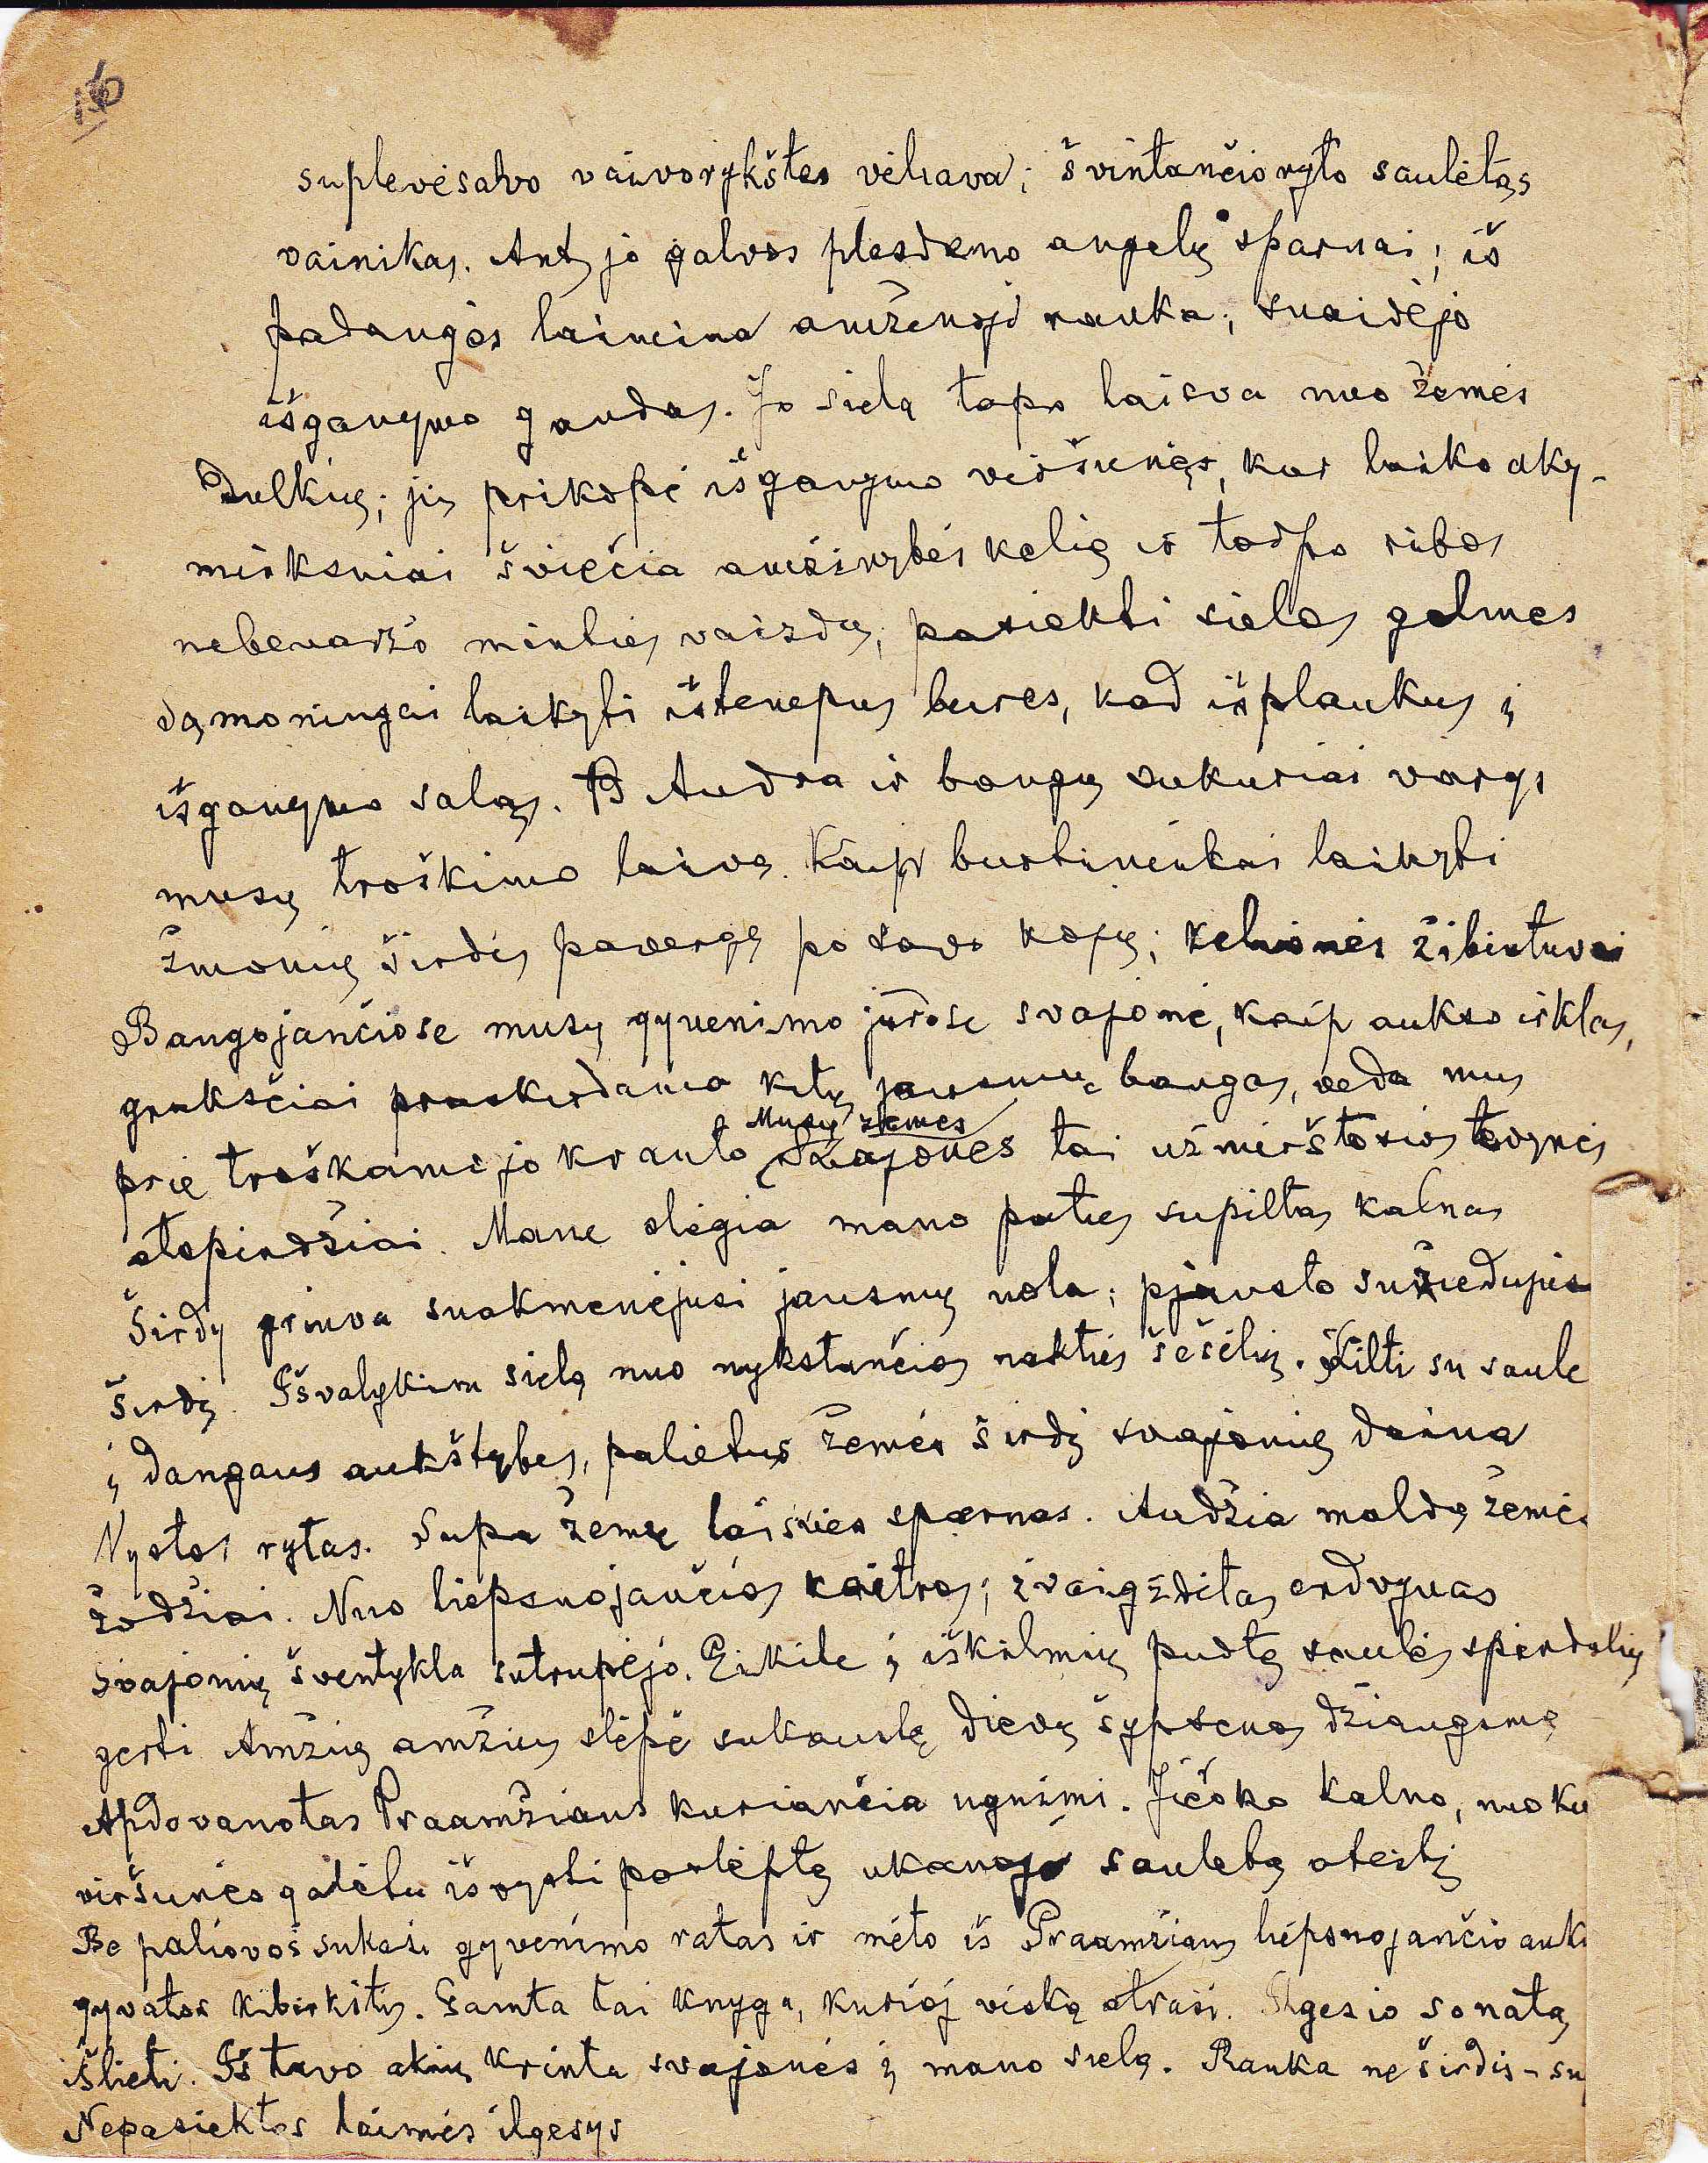 suplevėsavo vaivorykštes vėliava; švintančio ryto saulėtas
vainikas. Ant jo galvos plesdeno angelų sparnai; iš
padangės laimina amženoji ranka; suaidėjo
išganymo gaudas. Jo siela tapo laisva nuo žemės
Dulkių; jis prikopė išganymo viršunes, kur laiko aky-
mirksniai šviečia amžinybės kelią ir tarpo ribos
nebevaržo minties vaizdų; pasiekti sielos gelmes
sąmoningai laikyti ištempus bures, kad išplaukus į
išganymo salas. Audra ir bangų sukuriai vargs
musų troškimo laivą. Kaip burtininkai laikyti
žmonių širdis pavergę po savo kojų; kelionės žibintuvai
Bangojančiose musų gyvenimo jūrose svajonė, kaip aukso irklas,
grakščiai praskirdama kitų jausmų bangas, veda mus
prie troškamojo kranto Musų žemės Svajonės tai užmirštosios tėvynės
atspindžiai. Mane slėgia mano paties supiltas kalnas
Širdy griuva suakmenėjusi jausmų uola; pjausto sužiedujus
širdį. Išvalykim sielą nuo nykstančios nakties šešėlių. Kilti su saule
į dangaus aukštybes, palietus žemės širdį svajonių daina
Vystos rytas. Supa žemę laisvės sparnas. Audžia maldą žemės
žodžiai. Nuo liepsnojančios kaitros; žvaigždėtas erdvynas
svajonių šventykla sutrupėjo. Eikite į iškilmių puotą saulės spindulių
gerti Amžių amžius slėpė sukaustę dievų šypsenos džiaugsmą
Apdovanotas Praamžiaus kuriančia ugnimi. Jieško kalno, nuo ku
viršunės galėtu išvysti paslėptą ukanoje saulėtą ateitį
Be paliovos sukasi gyvenimo ratas ir mėto iš Praamžiaus liepsnojančio auk
gyvatos kibirkštis. Gamta tai knyga, kurioj viską atrasi. Ilgesio sonatą
išlieti. Iš tavo akių krinta svajonės į mano sielą. Ranka ne širdis - su
Nepasiektos laimės ilgesys